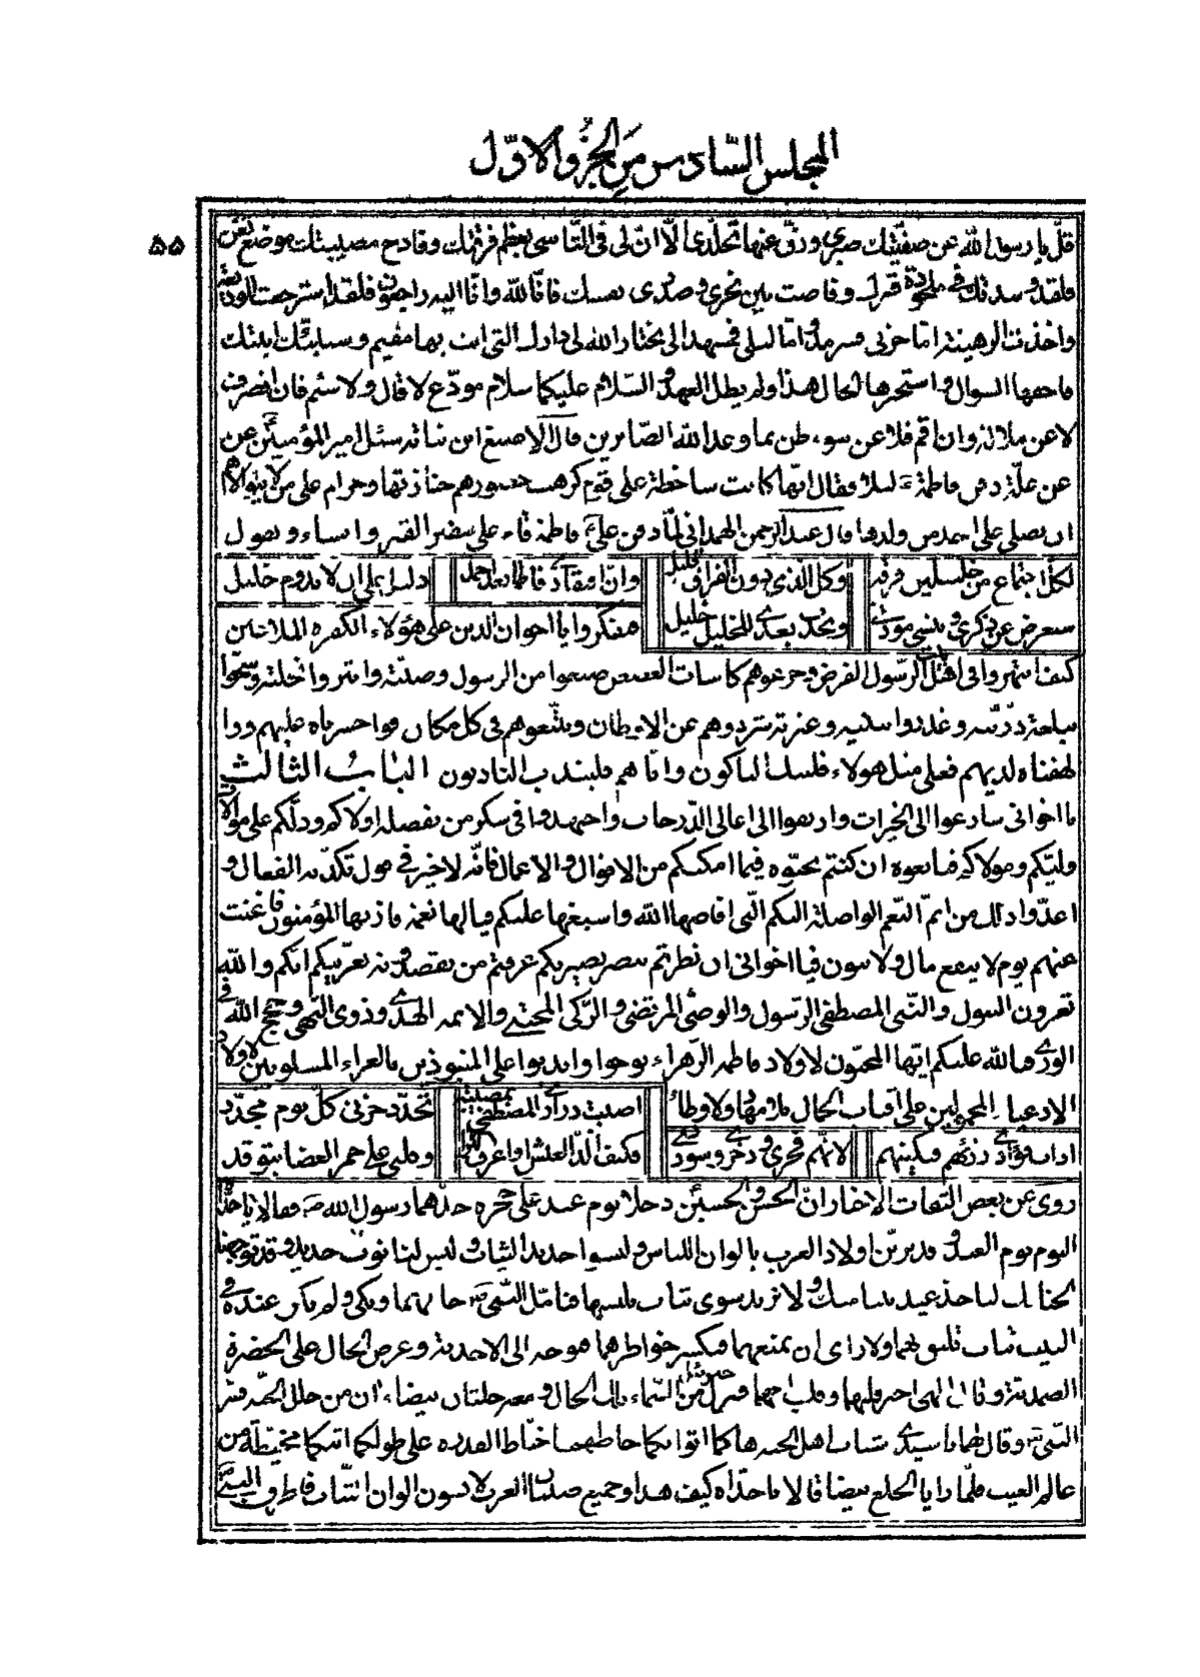 المجلس السّادس من الجزؤ الاوّل
٥٥
قلّ يا رسول الله عن صفيّتك صبرى ورقّ عنها تجلّدى الّا انّ لى فى التّاسى بعظم فرقتك وفادح مصيبتك موضع تعزّ
فلقد وسدتك فى ملحودة قبرك وفاضت بين نحرى وصدرى نفسك فانّا لله وانّا اليه راجعون فلقد استرجعت الوديعة
واخذت الرهينة امّا حزنى فسرمد وامّا ليلى فمسهد الى يختار الله لى دارك التى انت بها مقيم وستنبّئك ابنتك
فاحفها السوال واستخبرها الحال هذا ولم يطل العهد والسّلام عليكما سلام مودّع لا قال ولا سئم فان انصرف
لا عن ملالة وان اقم فلا عن سوء ظن بما وعد الله الصّابرين قال الاصبغ ابن نباته سئل امير المؤمنين عن
عن علّة دفن فاطمة ليلا فقال انّها كانت ساخطة على قوم كرهت حضورهم جنازتها وحرام على من يتولاهم
ان يصلى على احد من ولدها قال عبد الرحمن الهمدانى لمّا دفن علىّ فاطمة قام على شفير القبر وانشاء يقول
لكلّ اجتماع من خليلين فرقة وكل الّذى دون الفراق قليل وانّ افتقادى فاطما بعد احمد دليل على ان لا يدوم خليل
سيعرض عن ذكرى وينسى مودّتى ويحدث بعدى للخليل خليل فتفكروا يا اخوان الدين على هؤلاء الكفرة الملاعين
كيف ائتمروا فى اهل الرّسول وجرعوهم كاسات منعوا من الرسول وصلته وابتزوا نحلته وسمّوا
وعترته شردوهم عن الاوطان وتتبّعوهم فى كل مكان فواحسرتاه عليهم ووا
لهفتاه لديهم فعلى مثل هولاء فليبك الباكون وايّاهم فليندب النادبون الباب الثالث
يا اخوانى سارعوا الى الخيرات وارتقوا الى اعالى الدّرجات واجتهدوا فى شكر من بفضله اولاكم ودلّكم على
وليّكم ومولاكم فتابعوه ان كنتم تحبّوه فيما امكنكم من الاقوال والاعمال فانّه لا خير فى قول تكذّبه الفعال و
اعدّوا ذلك من اتمّ النّعم الواصلة اليكم الّتى افاضها الله واسبغها عليكم فيا لها نعمة فاز بها المؤمنون فاغنت
عنهم يوم لا ينفع مال ولا بنون فيا اخوانى ان نظرتم ببصر بصيرتكم عرفتم من تقصدونه بعزيتكم انكم والله
تعزون البتول والنّبى المصطفى الرّسول والوصىّ المرتضى والزّكى المجتبى والائمه الهدى وذوى النّهى وحجج الله فى
الورى فبالله عليكم ايّها المحبّون لاولاد فاطمة الزّهراء نوحوا واندبوا على المنبوذين بالعراء المسلوبين لاولاد
الادعياء المحمولين على اقتاب الجمال بلا مهاد ولا وطاء اصبت برزء المصطفى تجدّد حزنى كلّ يوم مجدّد
اذاب فؤادى رزئهم لانّهم فخرى وذخرى وسوددى فكيف الذّ العيش وقلبى على جمر الغضا يتوقد
روى عن بعض الثقات الاخيار انّ الحسن والحسين دخلا يوم عيد على حجرة جدّهما رسول الله ص فقالا يا جدّاه
اليوم يوم العيد وقد تزيّن اولاد العرب بالوان اللباس ولبسوا جديد الثياب وليس لنا ثوب جديد وقد توجهنا
لجنابك لناخذ عيديتنا منك ولا نريد سوى ثياب نلبسها فتامّل النّبى ص حالهما وبكى ولم يكن عنده فى
البيت ثياب تليق بهما ولا راى ان يمنعهما فيكسر خواطرهما فتوجه الى الاحدية وعرض الحال على الحضرة
الصمدية وقال الهى اجبر قلبهما وقلب امّهما فنزل جبرئيل من السّماء تلك الحال ومعه حلتان بيضاوتان من حلل الجنّة فسرّ
النّبى ص وقال لهما يا سيّدى شباب اهل الجنة هاكما اثوابكما خاطهما خيّاط القدرة على طولكما اتتكما مخيطة من
عالم الغيب فلمّا رايا الخلع بيضا قالا يا جدّاه كيف هذا وجميع صبيان العرب لابسون الوان الثّياب فاطرق النّبى